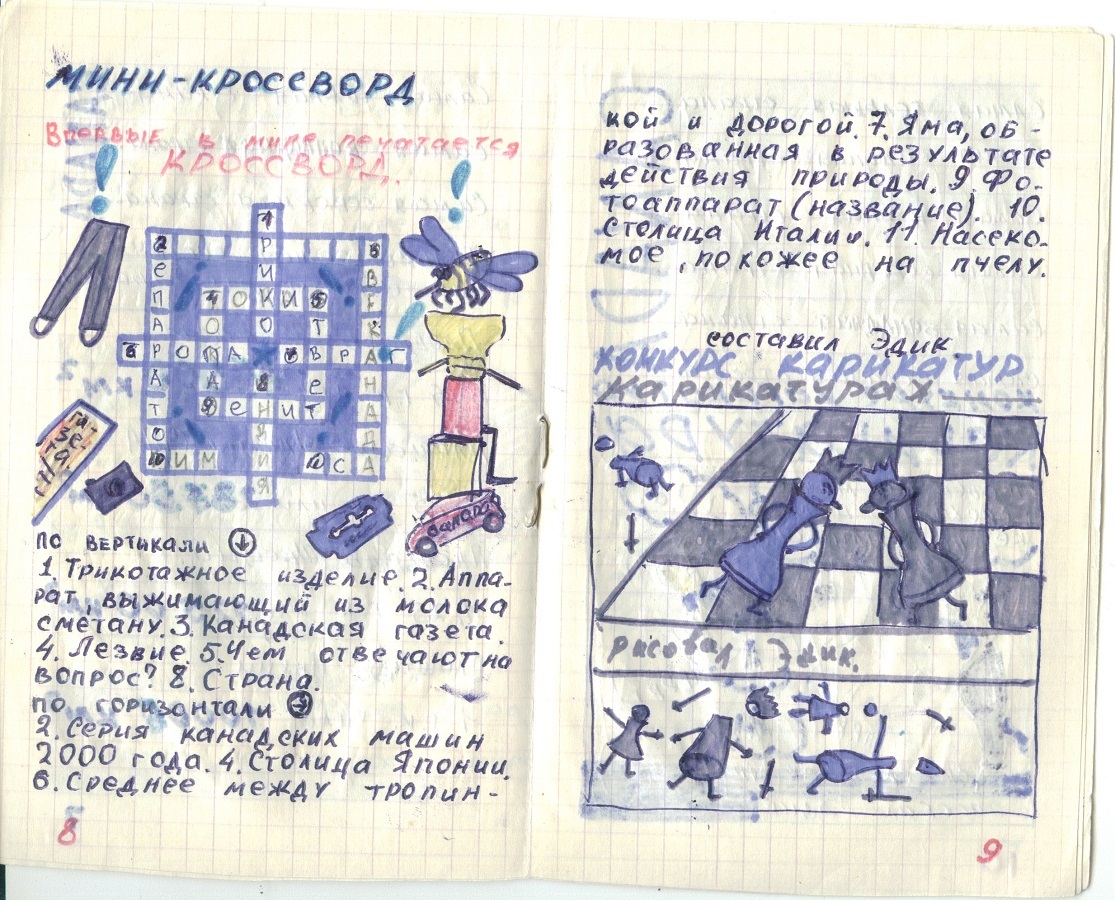 МИНИ-КРОССВОРД
Впервые в мире печатается
КРОССВОРД.
!
!
ОКИ
РОПА ВРАГ
енит
ИМ СА
га-
зе-
та.
ПО ВЕРТИКАЛИ ↓
1. Трикотажное изделие. 2. Аппа-
рат, выжимающий из молока
сметану. 3. Канадская газета.
4. Лезвие. 5. Чем отвечают на
вопрос? 8. Страна.
ПО ГОРИЗОНТАЛИ →
2. Серия канадских машин
2000 года. 4. Столица Японии.
6. Среднее между тропин-
8
кой и дорогой. 7. Яма, об-
разованная в результате
действия природы. 9. Фо-
тоаппарат (название). 10.
Столица Италии. 11. Насеко-
мое, похожее на пчелу.
составил Эдик
КОНКУРС КАРИКАТУР
КАРИКАТУРАХ
рисовал Эдик.
9